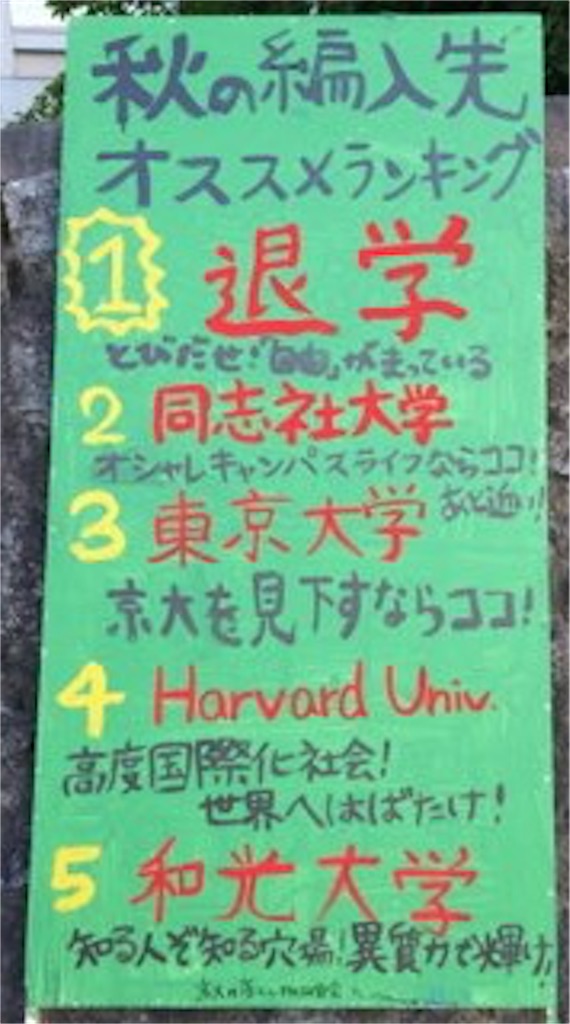 秋の編入先
オススメランキング
1 退学
とびだせ!「自由」がまっている
2 同志社大学
オシャレキャンパスライフならココ!
あと近い!
3 東京大学
京大を見下すならココ!
4 Harvard Univ.
高度国際化社会!
世界へはばたけ!
5 和光大学
知る人ぞ知る穴場!異質力で輝け!